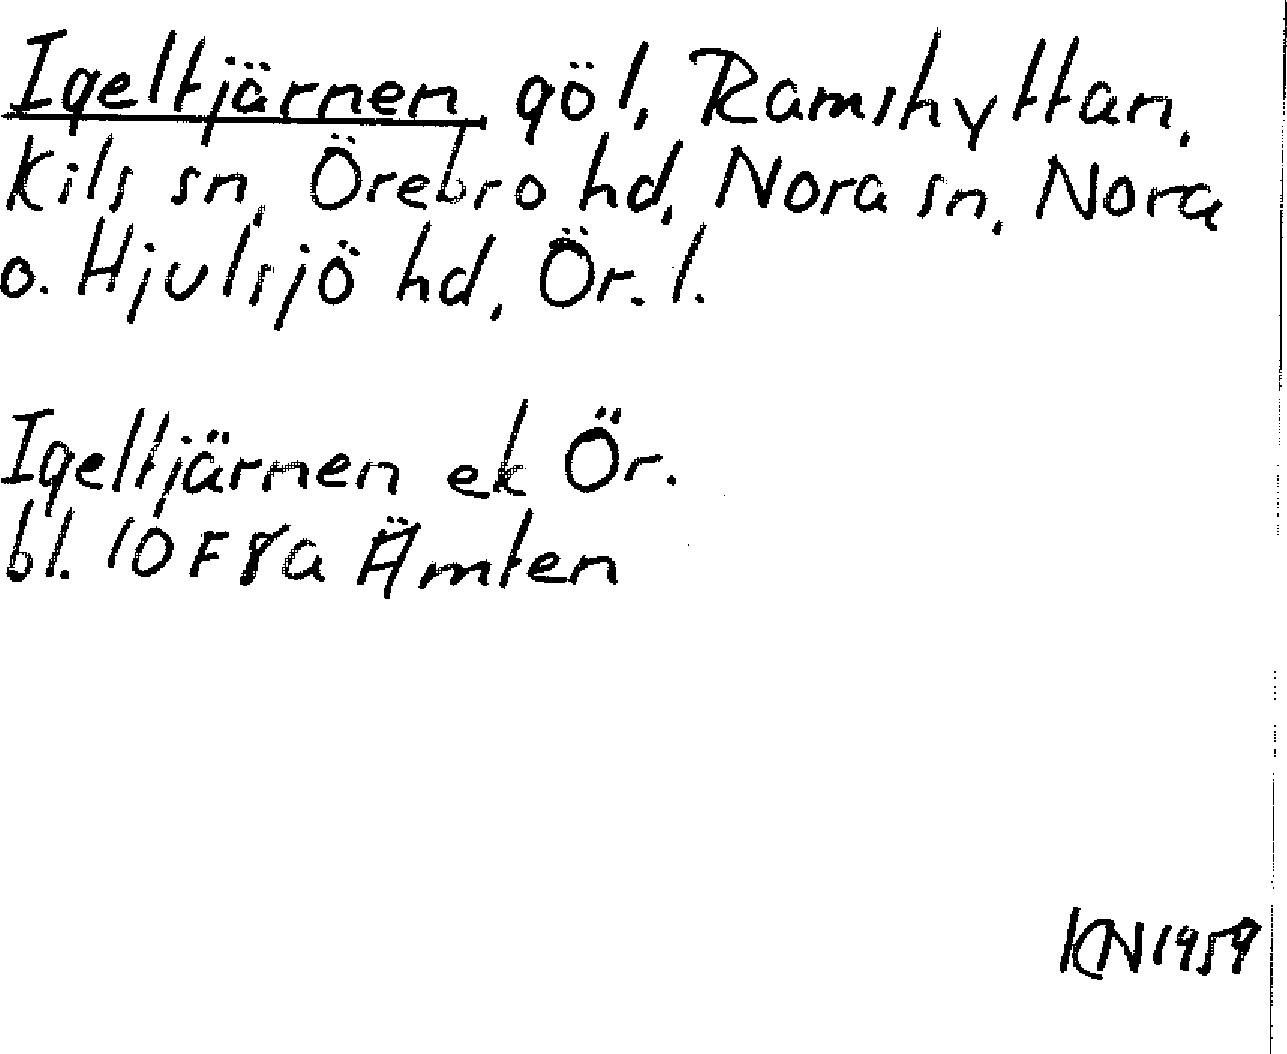 Igeltjärnen, göl, Ramshyttan,
Kils sn, Örebro hd, Nora sn, Nora
o. Hjulsjö hd, Ör. l.
Igeltjärnen ek Ör.
bl. 10F8a Ämten
KN1959